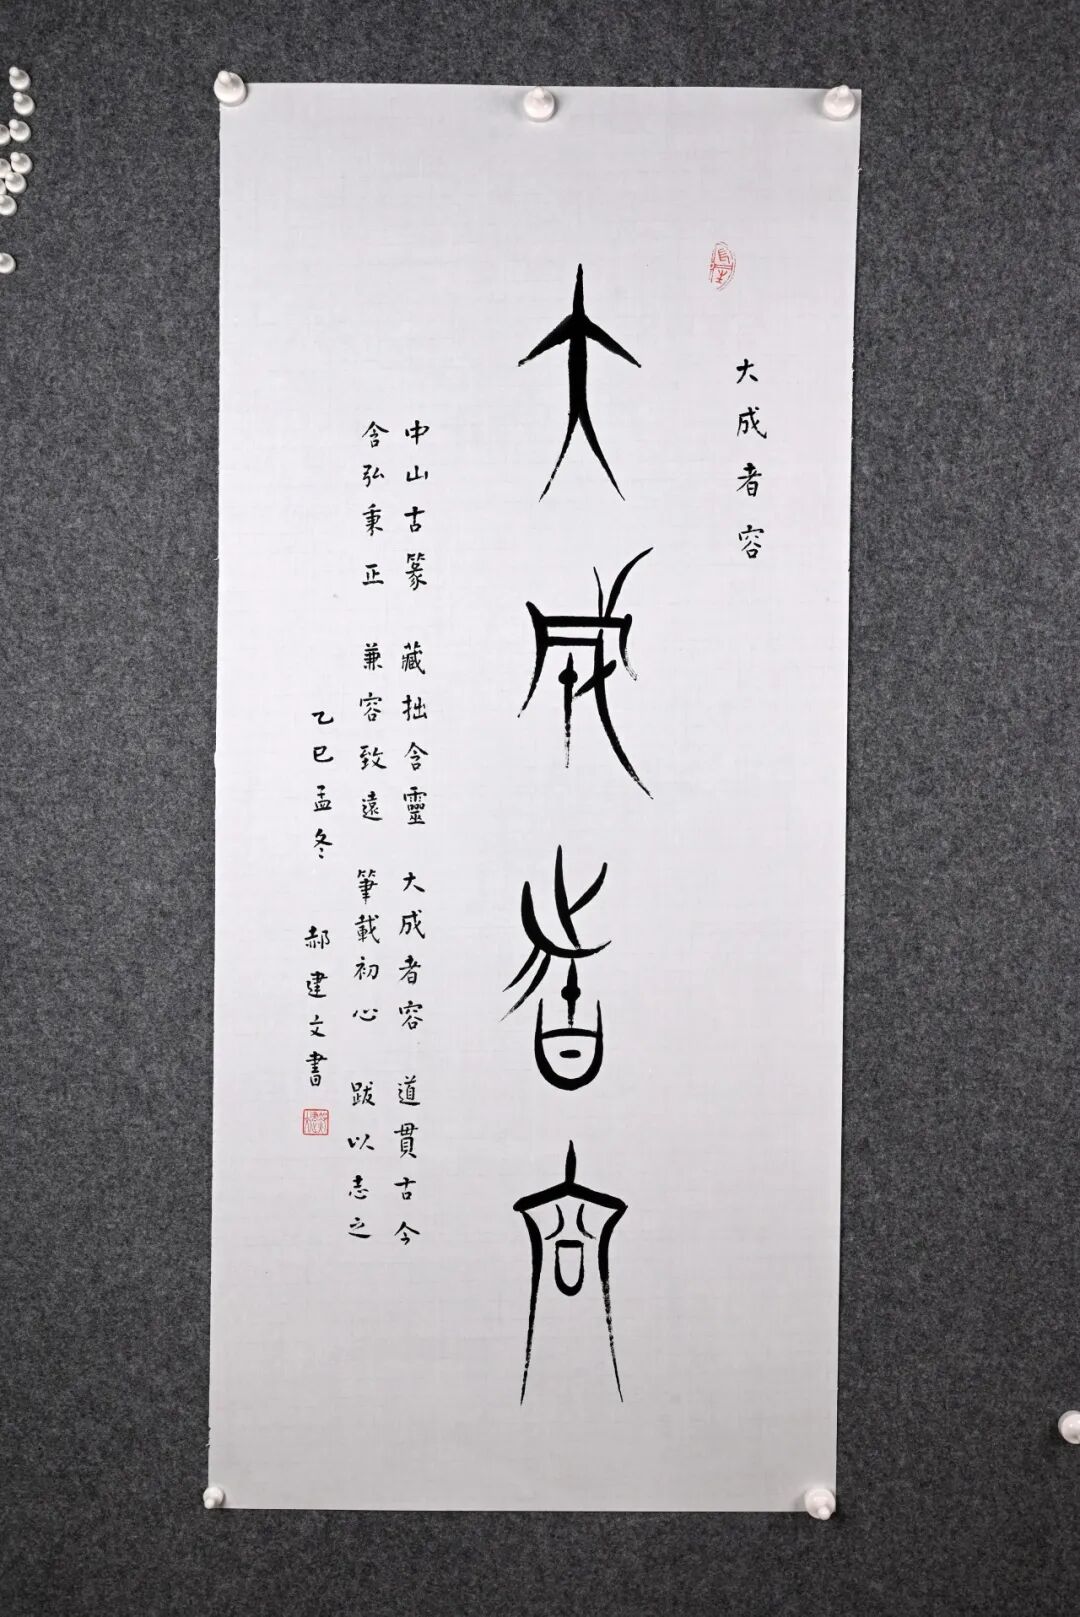 大成者容
大成者容
中山古篆 藏拙含靈 大成者容 道貫古今
含弘秉正 兼容致遠 筆載初心 跋以志之
乙巳孟冬 郝建文書